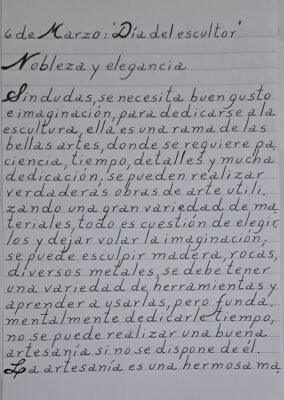 6 de Marzo: "Día del escultor"
Nobleza y elegancia
Sin dudas, se necesita buen gusto
e imaginación, para dedicarse a la
escultura, ella es una rama de las
bellas artes, donde se requiere pa_
ciencia, tiempo, detalles y mucha
dedicación. se pueden realizar
verdaderas obras de arte utili_
zando una gran variedad de ma_
teriales, todo es cuestión de elegir_
los y dejar volar la imaginación,
se puede esculpir madera, rocas,
diversos metales, se debe tener
una variedad de herramientas y
aprender a usarlas, pero funda_
mentalmente dedicarle tiempo,
no se puede realizar una buena
artesanía si no se dispone de él.
La artesanía es una hermosa ma_